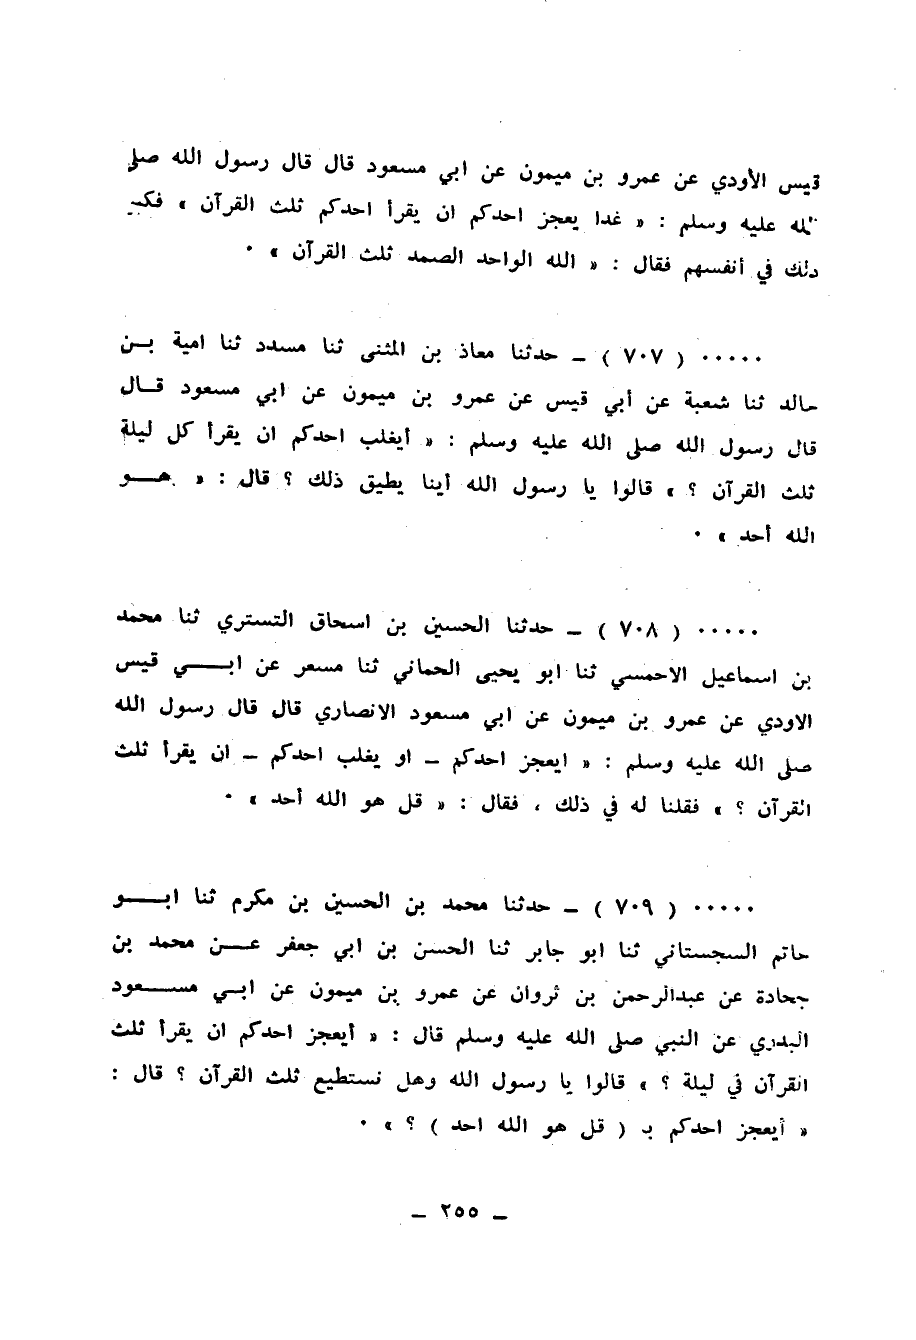 قيس الأودي عن عمرو بن ميمون عن ابي مسعود قال قال رسول الله صلى
الله عليه وسلم : « غدا يعجز احدكم ان يقرأ احدكم ثلث القرآن » فكبر
ذلك في أنفسهم فقال : « الله الواحد الصمد ثلث القرآن » ٠
٠٠٠٠٠ ( ٧٠٧ ) ـ حدثنا معاذ بن المثنى ثنا مسدد ثنا امية بـن
خالد ثنا شعبة عن أبي قيس عن عمرو بن ميمون عن ابي مسعود قـال
قال رسول الله صلى الله عليه وسلم : « أيغلب احدكم ان يقرأ كل ليلة
ثلث القرآن ؟ » قالوا يا رسول الله أينا يطيق ذلك ؟ قال : « هـــو
الله أحد » ٠
٠٠٠٠٠ ( ٧٠٨ ) ـ حدثنا الحسين بن اسحاق التستري ثنا محمد
بن اسماعيل الاحمسي ثنا ابو يحيى الحماني ثنا مسعر عن ابـــي قيس
الاودي عن عمرو بن ميمون عن ابي مسعود الانصاري قال قال رسول الله
صلى الله عليه وسلم : « ايعجز احدكم ـ او يغلب احدكم ـ ان يقرأ ثلث
القرآن ؟ » فقلنا له في ذلك ، فقال : « قل هو الله أحد » ٠
٠٠٠٠٠ ( ٧٠٩ ) ـ حدثنا محمد بن الحسين بن مكرم ثنا ابـــو
حاتم السجستاني ثنا ابو جابر ثنا الحسن بن ابي جعفر عـــن محمد بن
جحادة عن عبدالرحمن بن ثروان عن عمرو بن ميمون عن ابـي مســـعود
البدري عن النبي صلى الله عليه وسلم قال : « أيعجز احدكم ان يقرأ ثلث
القرآن في ليلة ؟ » قالوا يا رسول الله وهل نستطيع ثلث القرآن ؟ قال :
« أيعجز احدكم بـ ( قل هو الله احد ) ؟ » ٠
ـ ٢٥٥ ـ